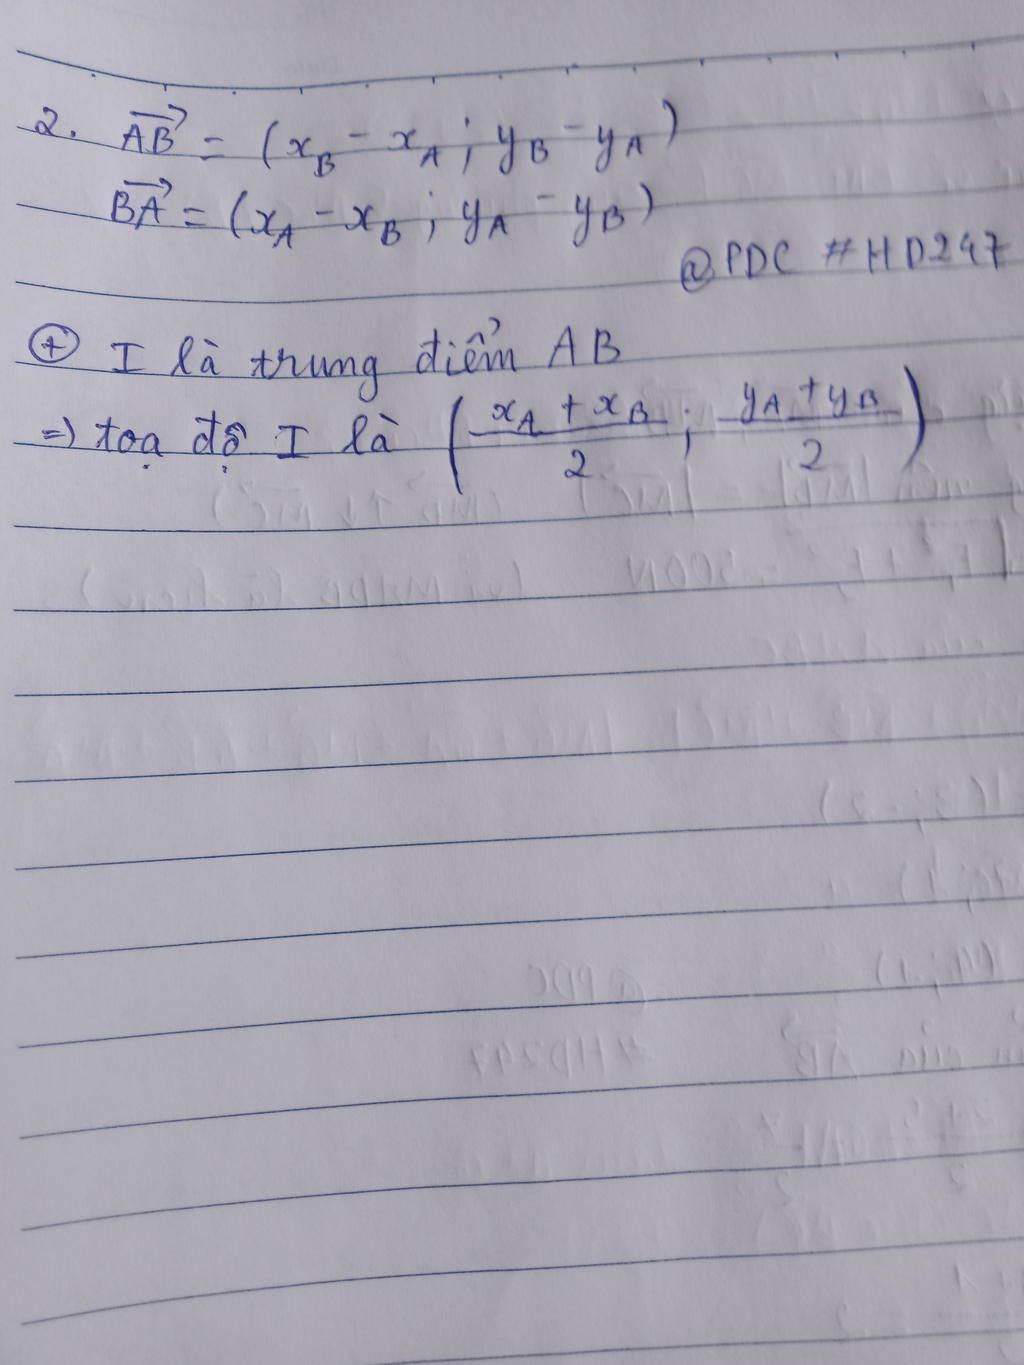 2. $\overrightarrow{AB} = (x_B - x_A ; y_B - y_A)$
$\overrightarrow{BA} = (x_A - x_B ; y_A - y_B)$
@PDC #HD247
⊕ I là trung điểm AB
=> toạ độ I là $\left( \frac{x_A + x_B}{2} ; \frac{y_A + y_B}{2} \right)$